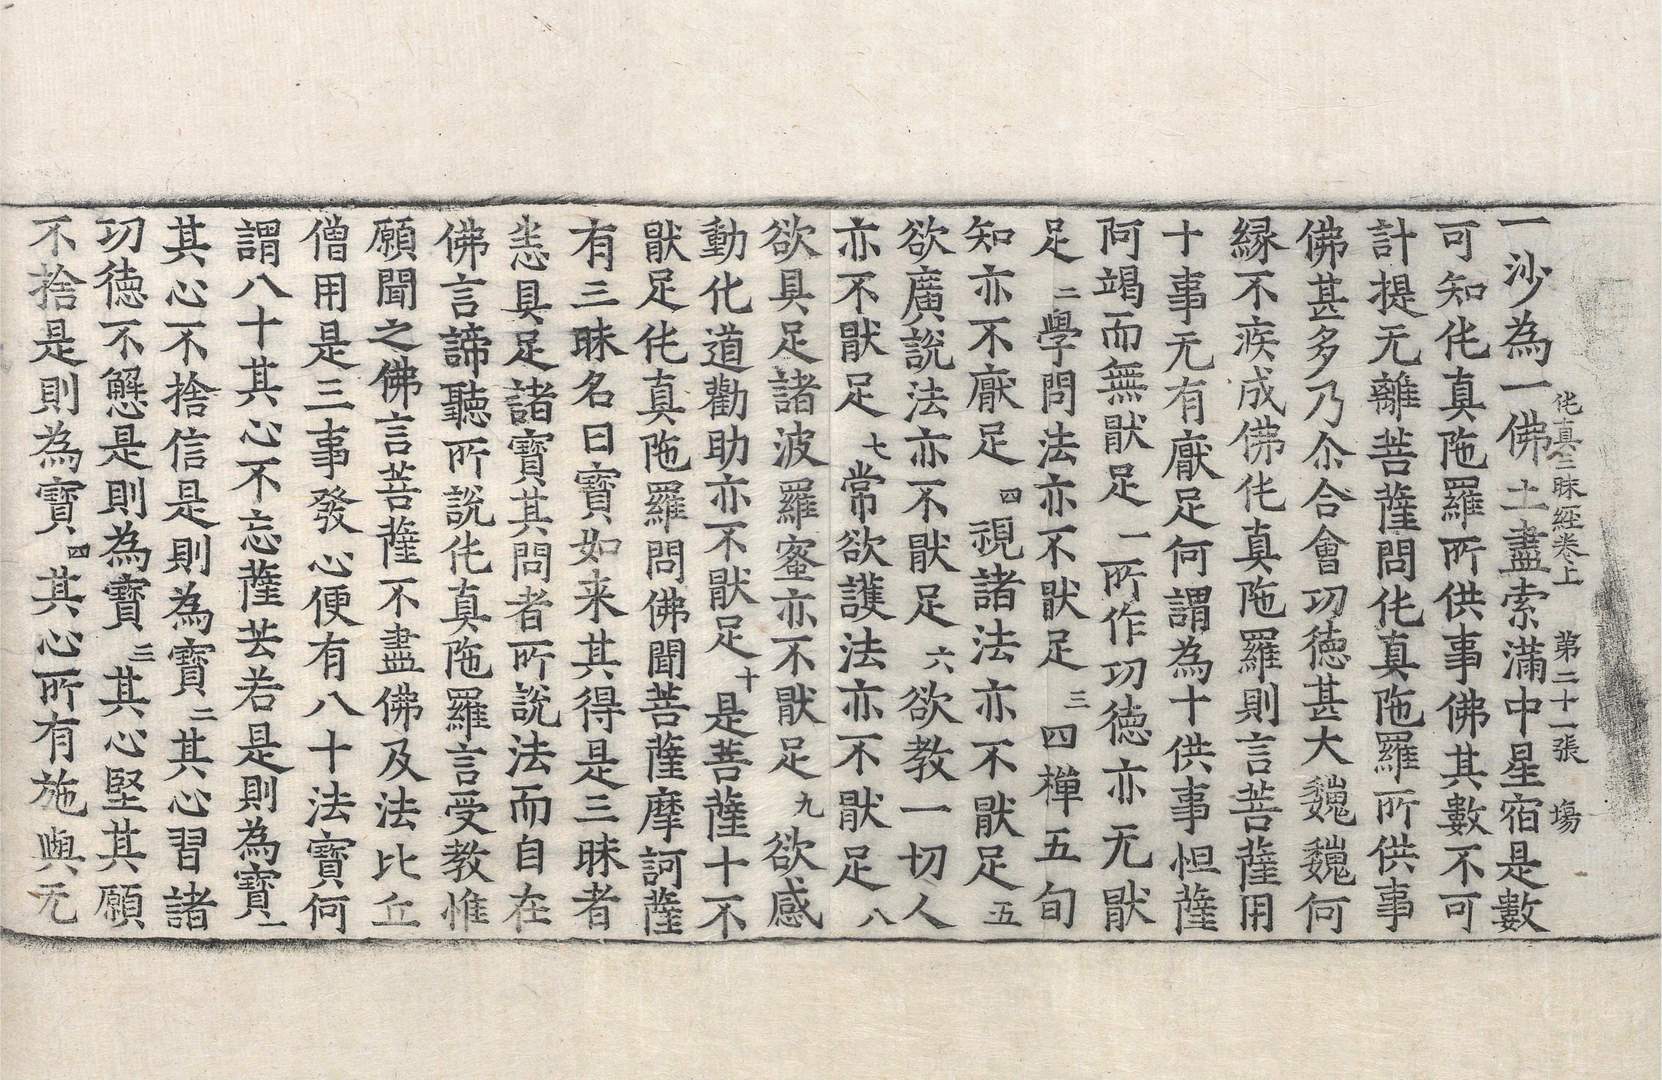 伅真三昧經卷上　第二十一張　塲
一沙為一佛土盡索滿中星宿是數
可知伅真陁羅所供事佛其數不可
計提无離菩薩問伅真陁羅所供事
佛甚多乃尒合會功德甚大巍巍何
縁不疾成佛伅真陁羅則言菩薩用
十事无有厭足何謂為十供事怛薩
阿竭而無猒足一所作功德亦无猒
足二學問法亦不猒足三四禪五旬
知亦不厭足四視諸法亦不猒足五
欲廣說法亦不猒足六欲教一切人
亦不猒足七常欲護法亦不猒足八
欲具足諸波羅蜜亦不猒足九欲感
動化道勸助亦不猒足十是菩薩十不
猒足伅真陁羅問佛聞菩薩摩訶薩
有三昧名曰寶如来其得是三昧者
悉具足諸寶其問者所說法而自在
佛言諦聽所說伅真陁羅言受教惟
願聞之佛言菩薩不盡佛及法比丘
僧用是三事發心便有八十法寶何
謂八十其心不忘薩芸若是則為寶一
其心不捨信是則為寶二其心習諸
功德不懈是則為寶三其心堅其願
不捨是則為寶四其心所有施與无